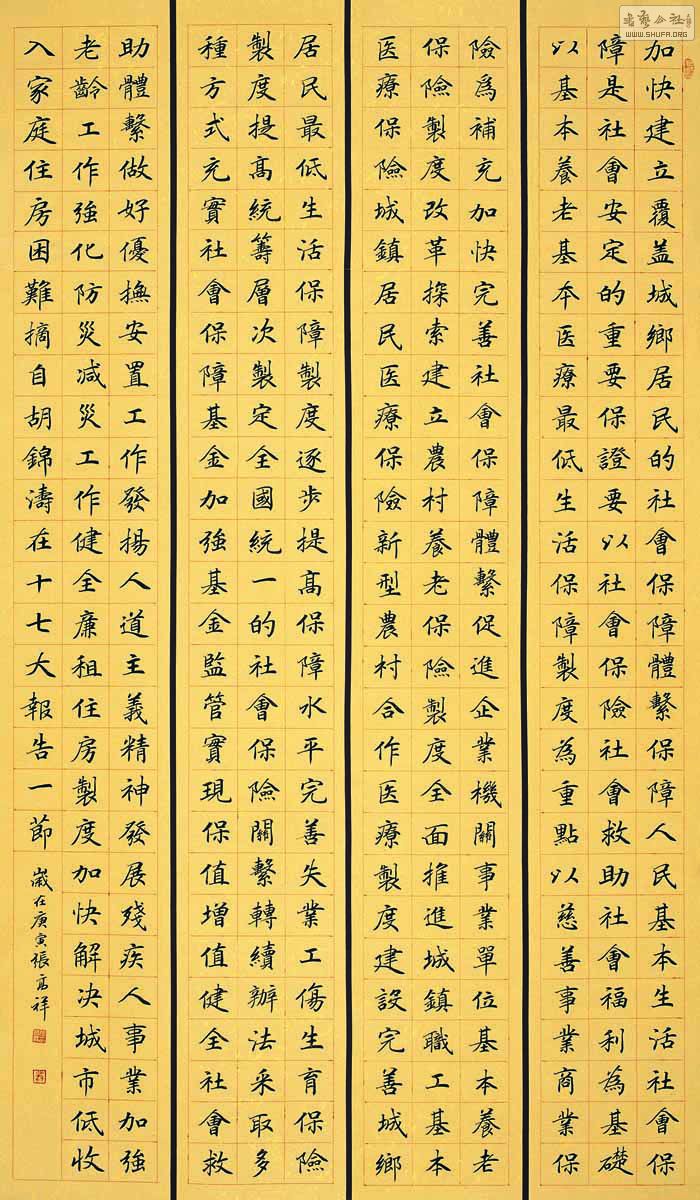 加快建立覆盖城鄉居民的社會保障體繫保障人民基本生活社會保
障是社會安定的重要保證要以社會保險社會救助社會福利為基礎
以基本養老基本医療最低生活保障製度為重點以慈善事業商業保
險爲補充加快完善社會保障體繫促進企業機關事業單位基本養老
保險製度改革探索建立農村養老保險製度全面推進城鎮職工基本
医療保險城鎮居民医療保險新型農村合作医療製度建設完善城鄉
居民最低生活保障製度逐步提高保障水平完善失業工傷生育保險
製度提高統籌層次製定全國統一的社會保險關繫轉續辦法采取多
種方式充實社會保障基金加強基金監管實現保值增值健全社會救
助體繫做好優撫安置工作發揚人道主義精神發展殘疾人事業加強
老齡工作強化防災减災工作健全廉租住房製度加快解决城市低收
入家庭住房困難摘自胡錦濤在十七大報告一節
歲在庚寅張高祥
書藝公社
WWW.SHUFA.ORG